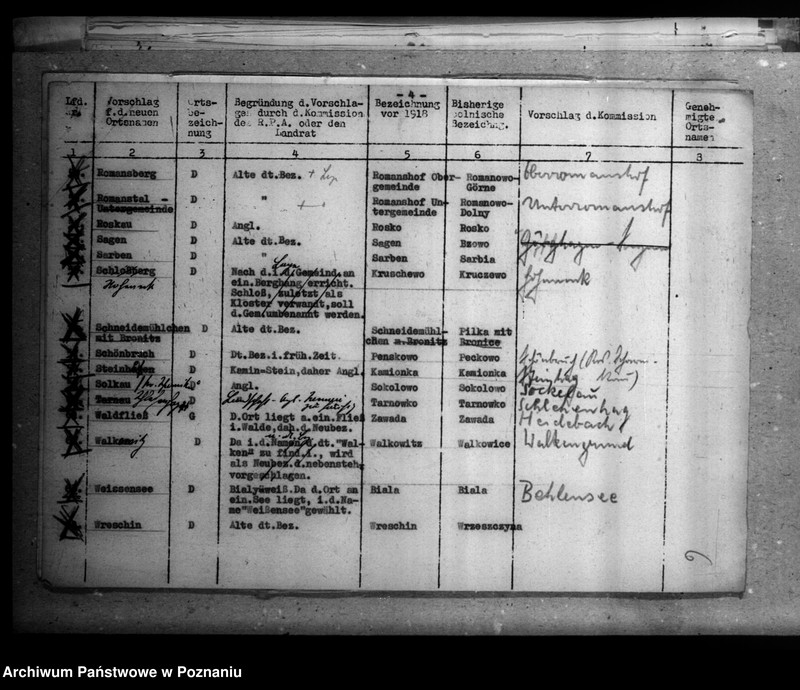 - 4 -
Lfd. Vorschlag f.d.neuen Ortsnamen Orts-be-zeich-nung Begründung d.Vorschla-ges durch d.Kommission des R.P.A. oder den Landrat Bezeichnung vor 1918 Bisherige polnische Bezeichng. Vorschlag d.Kommission Geneh-migte Orts-namen
1 2 3 4 5 6 7 8
Romansberg D Alte dt.Bez. Romanshof Ober- Romanowo- Oberromanshof
gemeinde Görne
Romanstal - D " Romanshof Un- Romanowo- Unterromanshof
Untergemeinde tergemeinde Dolny
Roskau D Angl. Rosko Rosko
Sagen D Alte dt.Bez. Sagen Bzowo
Sarben D " Sarben Sarbia
Schloßberg D Nach d.i.d.Gemeinde an Kruschewo Kruczewo
Hoheneck ein.Berghang erricht.
Schloß, zuletzt als
Kloster verwandt, soll
d.Gem.umbenannt werden.
Schneidemühlchen D Alte dt.Bez. Schneidemühl- Pilka mit
mit Bronitz chen m.Bronitz Bronice
Schönbruch D Dt.Bez.i.früh.Zeit. Penskowo Peckowo
D Kamin=Stein, daher Angl. Kamionka Kamionka
Solkau D Angl. Sokolowo Sokolowo
Tarnau D Tarnowko Tarnowko Schlehenhag
Waldfließ G D.Ort liegt a.ein.Fließ Zawada Zawada Heidebach
i.Walde,dah.d.Neubez.
D Da i.d.Namen d.dt."Wal- Walkowitz Walkowice Walkengrund
ken" zu find.i., wird
als Neubez.d.nebensteh.
vorgeschlagen.
Weissensee D Bialy=weiß.Da d.Ort an Biala Biala Behlensee
ein.See liegt, i.d.Na-
me"Weißensee"gewählt.
Wreschin D Alte dt.Bez. Wreschin Wrzeszczyna
Archiwum Państwowe w Poznaniu